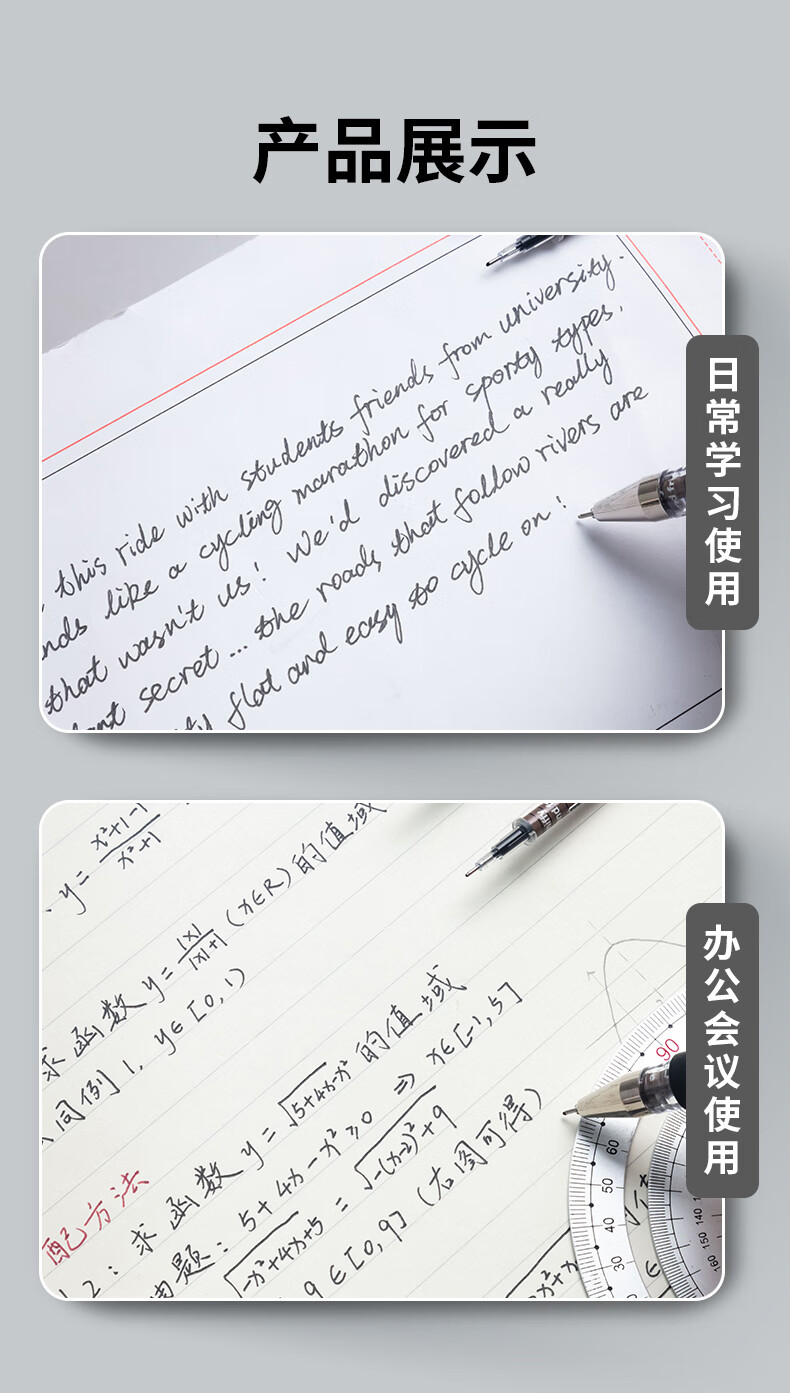 产品展示
this ride with students friends from university.
like a cycling marathon for sporty types,
that wasn't us! We'd discovered a really
secret... the roads that follow rivers are
flat and easy to cycle on!
日常学习使用
y = x²+1-1 / x²+1
求函数 y = |x| / |x|+1 (x∈R) 的值域
同例1, y∈[0,1)
配方法
2: 求函数 y = √5+4x-x² 的值域
题: 5+4x-x²≥0 ⇒ x∈[-1,5]
√-x²+4x+5 = √-(x-2)²+9
9∈[0,9] (右图可得)
90
60
50
40
30
140
150
160
办公会议使用